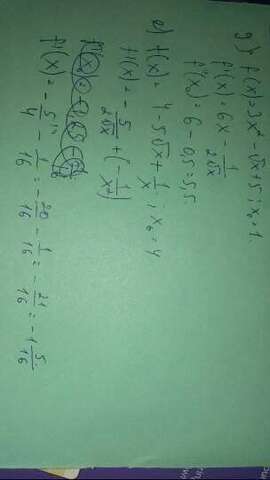 g) f(x)=3x²-√x+5; x₀=1.
f'(x)=6x-1/2√x
f'(x₀)=6-0,5=5,5.
e) f(x)=4-5√x+1/x; x₀=4
f'(x)=-5/2√x+(-1/x²)
f'(x)=-5/4-1/16=-20/16-1/16=-21/16=-1 5/16